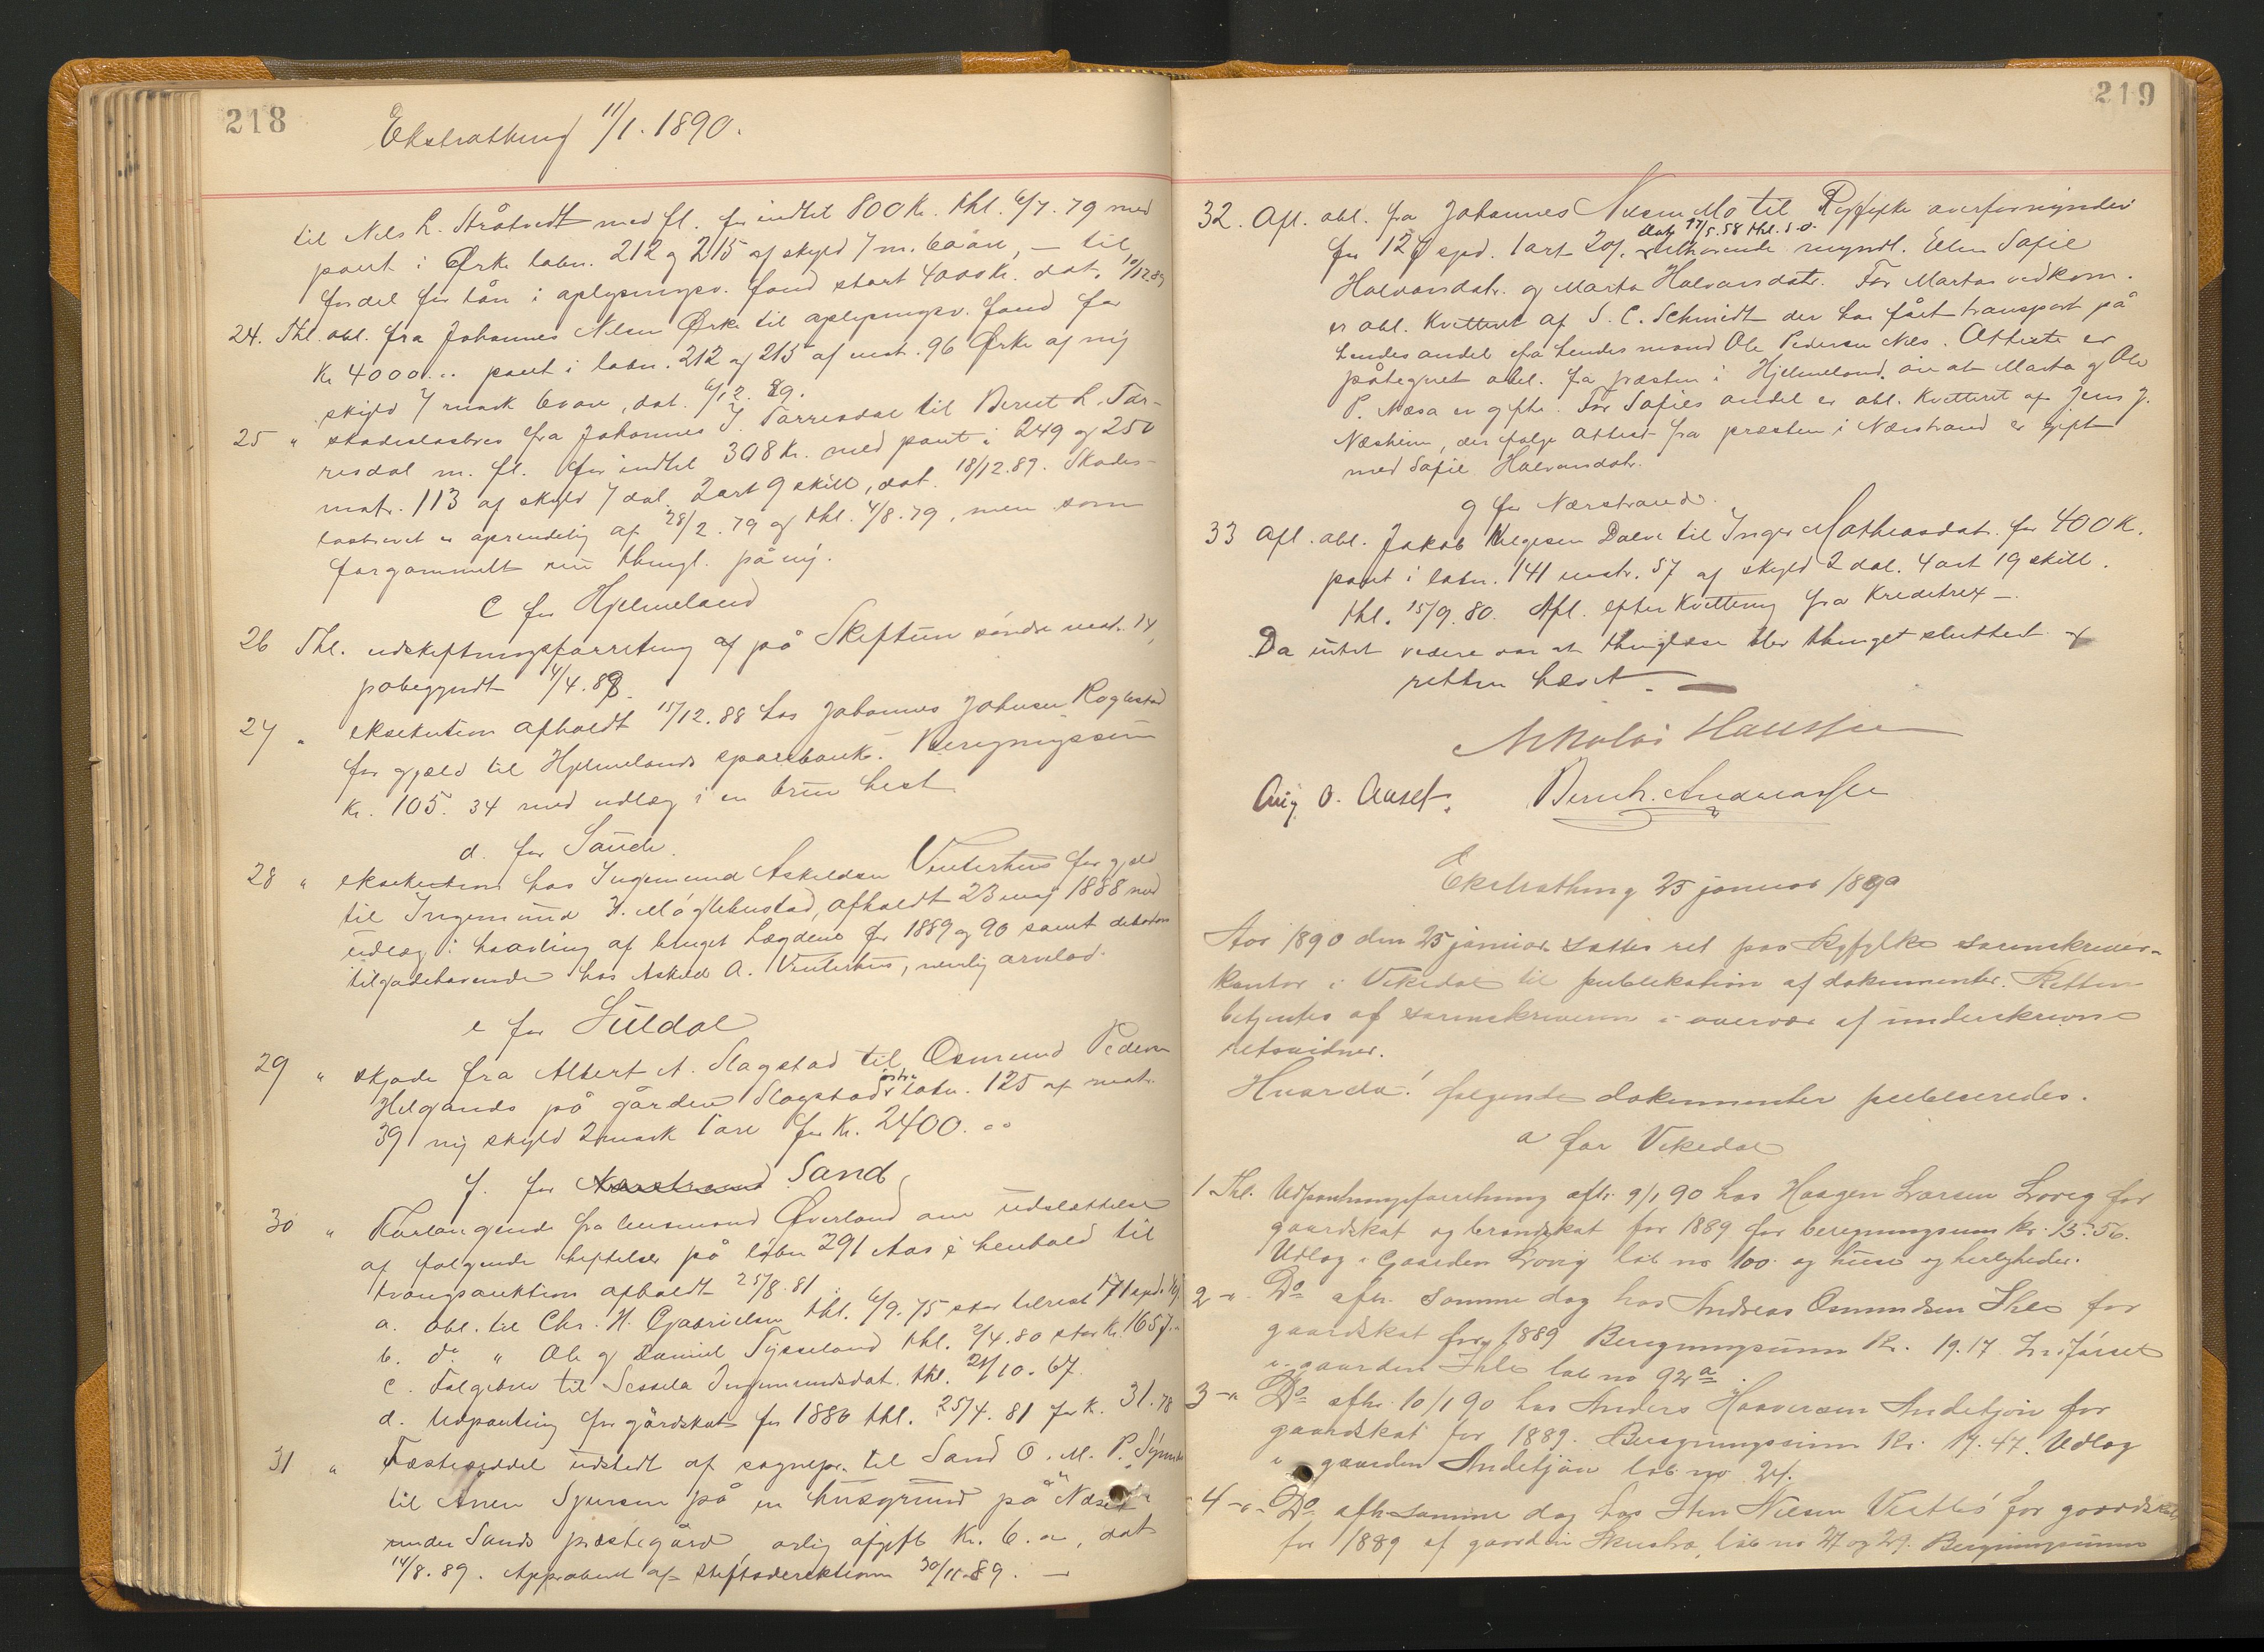 218
Ekstrathing 11/1. 1890.
til Nils L. Stråtvedt med fl. for indtil 800 Kr. thl. 6/7. 79 med
pant i Ørke løbn. 212 og 215 af skyld 7 m. 60 øre, — til
fordel for lån i oplysningsv. fond stort 4000 Kr. dat. 10/12.89
24. Thl. obl. fra Johannes Nilsen Ørke til oplysningsv. fond for
Kr 4000.. pant i løbn. 212 og 215 af matr. 96 Ørke af ny
skyld 7 mark 60 øre, dat. 6/12. 89.
25 " skadesløsbrev fra Johannes J. Tarresdal til Berent L. Tar-
resdal m. fl. for indtil 308 Kr. med pant i 249 og 250
matr. 113 af skyld 7 dal. 2 ort 9 skill, dat. 18/12.89. Skades-
løsbrevet er oprindelig af 28/2. 79 og thl. 4/8. 79, men som
forgammelt nu thingl. på ny.
C for Hjelmeland
26 Thl. udskiftningsforretning af på Skiftun søndre mat. 14,
påbegyndt 11/4. 89.
27 " eksekution afholdt 15/12. 88 hos Johannes Johnsen
for gjæld til Hjelmelands sparebank. Beregningssum
Kr. 105. 34 med udlæg i en brun hest
d. for Saude.
28 " eksekution hos Ingemund Askildsen Vinterhus for gjæld
til Ingemund H. Møglebustad, afholdt 23 maj 1888 med
udlæg i høavling af bruget for 1889 og 90 samt
tilgodehavende hos Askild A. Vinterhus, nemlig arvelod.
e for Suldal
29 " skjøde fra Albert A. Slagstad til Osmund Pedersen
Helgands på gården Slagstad østre løbn. 125 af matr.
39 ny skyld 2 mark 1 øre for Kr. 2400. ..
f. for Nærstrand Sand
30 " Forlangende fra lensmand Øverland om udslettelse
af følgende heftelser på løbn 291 Aas i henhold til
tvangsauktion afholdt 25/8. 81 :
a. obl. til Chr. H. Gabrielsen thl. 6/9. 75 stor tilrest 171 spd.
b. do " Ole og Daniel Tysseland thl. 2/4. 80 stor Kr. 1657.
c. Følgebrev til Sessela Ingemundsdat. thl. 21/10. 67.
d. Udpanting for gårdskat for 1880 thl. 25/4. 81 for K. 31.78
31 " Fæsteseddel udstedt af sognepr. til Sand O. M. P.
til Anen Sjursen på en husgrund på "Næset"
under Sands præstegård, årlig afgift Kr. 6. .., dat
14/8. 89. Approberet af stiftsdirektionen 30/11. 89. —
219
32. Afl. obl. fra Johannes Nilsen Mo til Ryfylke overformynderi
dat 17/5. 58 thl. s. d.
for 127 spd. 1 ort 20 s. tilhørende myndl. Ellen Sofie
Halvorsdatr. og Marta Halvorsdatr. For Martas vedkom.
er obl. kvitteret af S. C. Schmidt der har fået transport på
hendes andel fra hendes mand Ole Pedersen Næs. Attest er
påtegnet obl. fra præsten i Hjelmeland, om at Marta og Ole
P. Næsa er gifte. For Sofies andel er obl. kvitteret af Jens J.
Næsheim, der ifølge attest fra præsten i Nærstrand er gift
med Sofie Halvorsdatr.
g for Nærstrand.
33 Afl. obl. Jakob Helgesen Dalve til Inger Mathiasdat. for 400 K.
pant i løbn. 141 matr. 57 af skyld 2 dal. 4 ort 19 skill.
thl. 15/9. 80. Afl. efter kvittering fra kreditrix —.
Da intet videre var at thinglæse blev thinget sluttet og
retten hævet. —
Nikolai Hanssen
Aug. O. Auset. Bernh. Andreassen
Ekstrathing 25 januar 1890
Aar 1890 den 25 januar sattes ret paa Ryfylke sorenskriver-
kontor i Vikedal til publikation af dokumenter. Retten
betjentes af sorenskriveren i overvær af underskrevne
retsvidner.
Hvorda! følgende dokumenter publiceredes.
a for Vikedal
1 Thl. Udpantningsforretning afh. 9/1 90 hos Haagen Larsen Lovig for
gaardskat og brandskat for 1889 for beregningssum Kr. 15.56.
Udlæg i Gaarden Lovig løb no 100. og huse og herligheder.
2 -"- Do afh. samme dag hos Andreas Osmundsen Ihle for
gaardskat for 1889 Beregningssum Kr. 19.17
i gaarden Ihle løb no 92 a.
3 -"- Do afh. 10/1 90 hos Anders Haaversen Andetjøn for
gaardskat for 1889. Beregningssum Kr. 17. 47. Udlæg
i gaarden Andetjøn løb no 24.
4 -"- Do afh samme dag hos Sten Nilsen for gaardskat
for 1889 af gaarden løb no 27 og 29. Beregningssum